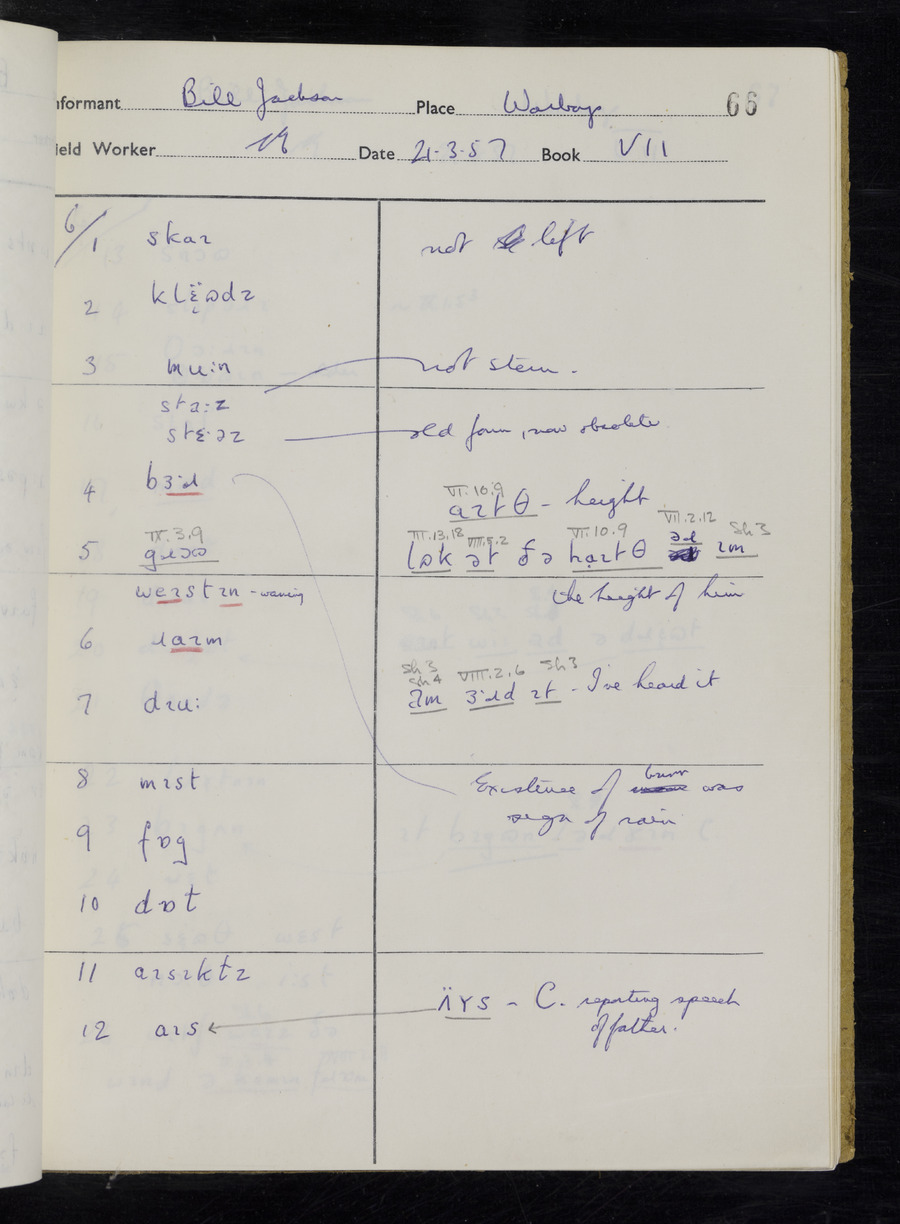 Informant Bill Jackson Place Warboys 66
Field Worker Date 21-3-57 Book VII
6/1 skaɪ not left
2 klɛ̈ɒdz
3 mu:n not stem.
sta:z
stɛ·əz old form, now obsolete
4 bɜ·ɹ
VI.10.9
aɪtθ - height
IX.3.9 III.13.18 VIII.5.2 VI.10.9 VII.2.12 Sh 3
5 gɹɔɷ lɒk ət ðə haɪtθ əɹ ɪm
weɪstɪn - waning the height of him
6 ɹaɪm
Sh 3
Sh 4 VIII.2.6 Sh 3
7 dɪu: am ɜ·ɹd ɪt - I've heard it
8 mɪst Existence of burr was
sign of rain
9 fɒg
10 dɒt
11 aɪsɪktz
12 aɪs ʌ̈ɪs - C. reporting speech
of father.